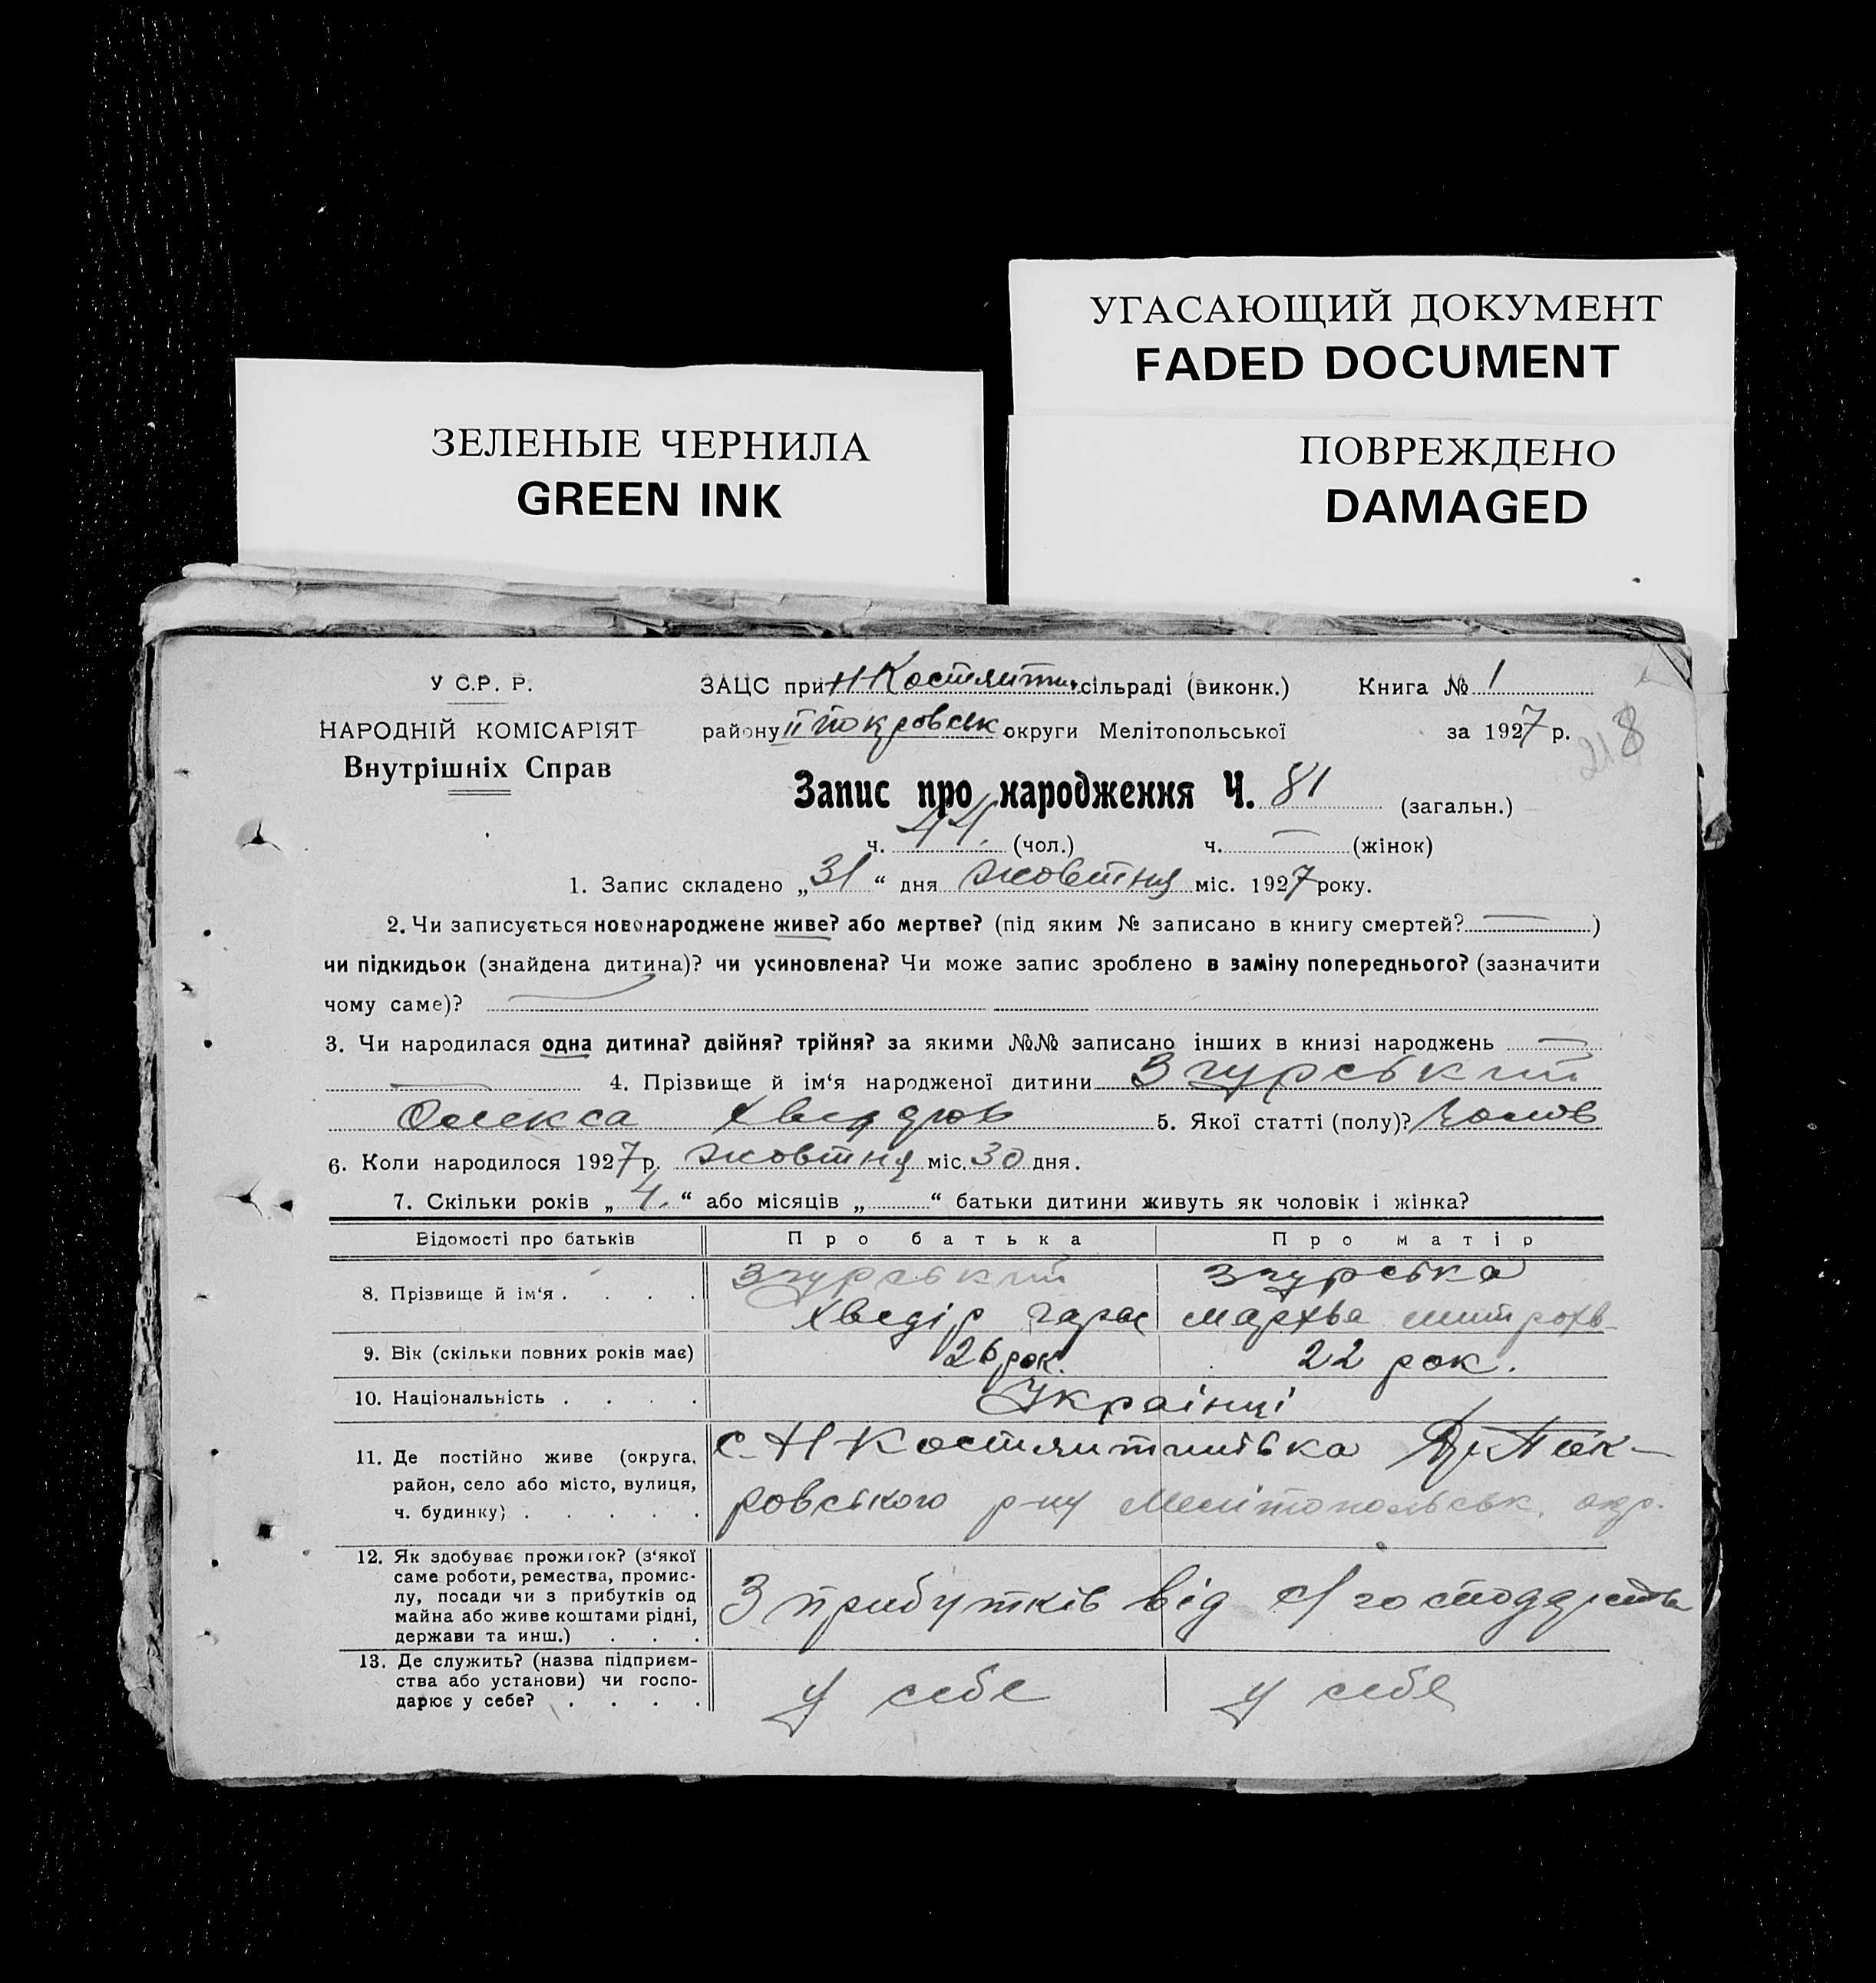 УГАСАЮЩИЙ ДОКУМЕНТ
FADED DOCUMENT
ЗЕЛЕНЫЕ ЧЕРНИЛА
GREEN INK
ПОВРЕЖДЕНО
DAMAGED
У С.Р. Р.
НАРОДНІЙ КОМІСАРІЯТ
Внутрішніх Справ
ЗАЦС при Н Костянти. сільраді (виконк.) Книга № 1
району II Покровськ округи Мелітопольської за 1927 р.
218
Запис про народження Ч. 81 (загальн.)
ч. 44. (чол.) ч. — (жінок)
1. Запис складено „31“ дня жовтня міс. 1927 року.
2. Чи записується новонароджене живе? або мертве? (під яким № записано в книгу смертей? — )
чи підкидьок (знайдена дитина)? чи усиновлена? Чи може запис зроблено в заміну попереднього? (зазначити
чому саме)? —
3. Чи народилася одна дитина? двійня? трійня? за якими №№ записано інших в книзі народжень —
— 4. Прізвище й ім‘я народженої дитини Згурський
Олекса Хведров 5. Якої статті (полу)? Чолов
6. Коли народилося 1927 р. жовтня міс. 30 дня.
7. Скільки років „4.“ або місяців „ “ батьки дитини живуть як чоловік і жінка?
Відомості про батьків Про батька Про матір
8. Прізвище й ім‘я . . . . Згурський Згурська
Хведір Гарас Мархва Митрохв-
9. Вік (скільки повних років має) 26 рок. 22 рок.
10. Національність . . . . Українці
11. Де постійно живе (округа, с. Н Костянтинівка Пок-
район, село або місто, вулиця,
ч. будинку) . . . . . ровського р-ну Мелітопольськ. окр.
12. Як здобуває прожиток? (з‘якої
саме роботи, ремества, промис-
лу, посади чи з прибутків од З прибутків від с/господарства
майна або живе коштами рідні,
держави та инш.) . . .
13. Де служить? (назва підприєм-
ства або установи) чи госпо- у себе у себе
дарює у себе? . . . .